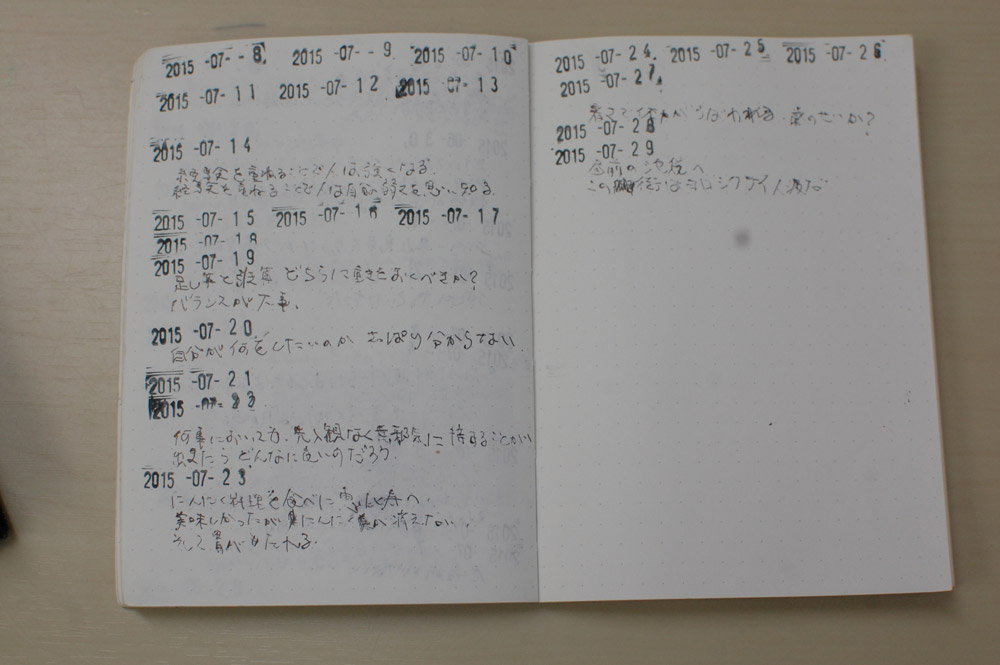 2015 -07- - 8 2015 -07- - 9 2015 -07- 1 0
2015 -07- 1 1 2015 -07- 1 2 2015 -07- 1 3
2015 -07- 1 4
経験を重ねることで人は強くなる。
経験を重ねることで人は自分の弱さを思い知る。
2015 -07- 1 5 2015 -07- 1 6 2015 -07- 1 7
2015 -07- 1 8
2015 -07- 1 9
足し算と引き算 どちらに重きをおくべきか?
バランスが大事、
2015 -07- 2 0
自分が何をしたいのか さっぱり分からない
2015 -07- 2 1
2015 -07-
何事においても、先入観なく無邪気に接することが
出来たら どんなに良いのだろう.
2015 -07- 2 3
にんにく料理を食べに、恵比寿へ.
美味しかったが にんにく が消えない、
そして胃がもたれる.
2015 -07- 2 4 2015 -07- 2 5 2015 -07- 2 6
2015 -07- 2 7
暑さで体力がうばわれる.
2015 -07- 2 8
2015 -07- 2 9
の池袋へ
この街は